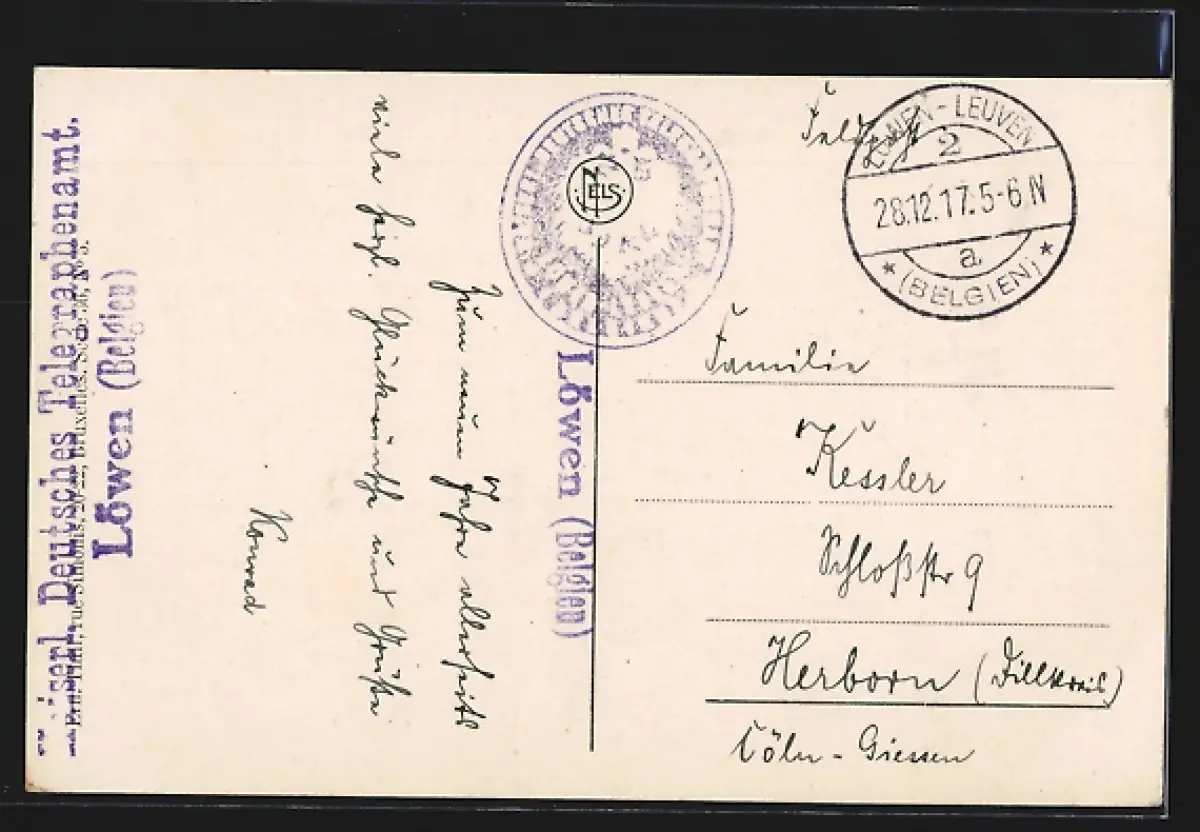 Feldpost
LÖWEN - LEUVEN
2
28.12.17.5-6 N
a
* (BELGIEN) *
NELS
Familie
Kessler
Schloßstr 9
Herborn (Dillkreis)
Cöln - Giessen
Zum neuen Jahre allerseits
viele herzl. Glückwünsche und Grüße
Konrad
Löwen (Belgien)
Kaiserl. Deutsches Telegraphenamt.
Löwen (Belgien)
Ern. Thill, rue Simonis, Bruxelles.